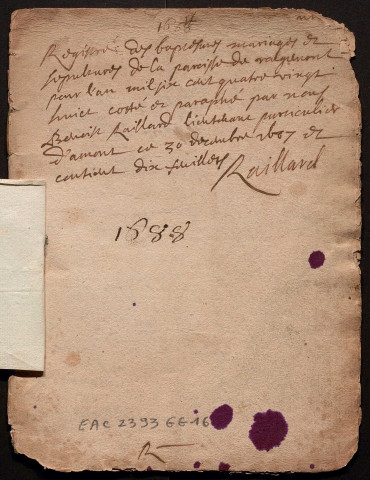 1688
Registre des baptesmes mariages et
sepultures de la paroisse de
pour l'an mil six cent quatre vingt
huict costé et paraphé par nous
Benoist Raillard lieutenant particulier
d'amont ce 30 decembre 1687 et
contient dix feuillets Raillard
1688
EAC 2393 GG 16
R